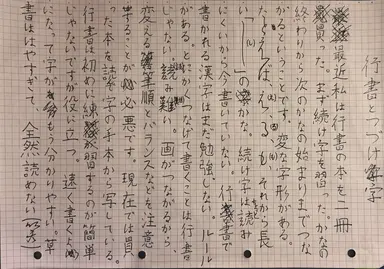 行書とつづけ字
最近私は行書の本を二冊
買った。まず続け字を習った。かなの
終わりから次のかなの始まりまでつな
がるということです。変な字形がある。
たとえば、え、る、も、それから長
い「し」の字かな。続け字は読み
にくいから今書いていない。行書で
書かれる漢字はまだ勉強しない。ルール
がある。とにかくつなげて書くことは行書
じゃない。読み難い。画がつながるから、
変える筆順とバランスなどを注意
することが必悪です。現在では買
った本を読み、字の手本から写している。
行書は初めに練習するのが簡単
じゃないですが役に立つ。速く書くよ
になって字がもう分かりやすい。草
書ははやすぎて、全然読めない(笑)